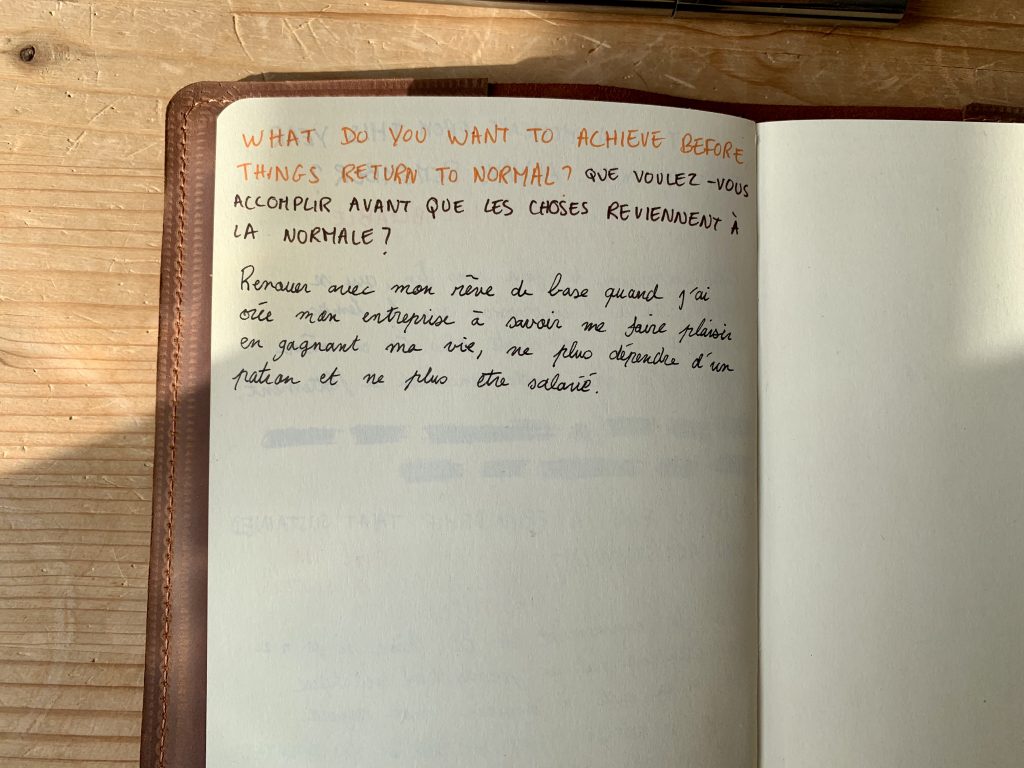 WHAT DO YOU WANT TO ACHIEVE BEFORE
THINGS RETURN TO NORMAL? QUE VOULEZ-VOUS
ACCOMPLIR AVANT QUE LES CHOSES REVIENNENT À
LA NORMALE?
Renouer avec mon rêve de base quand j'ai
créé mon entreprise à savoir me faire plaisir
en gagnant ma vie, ne plus dépendre d'un
patron et ne plus etre salarié.